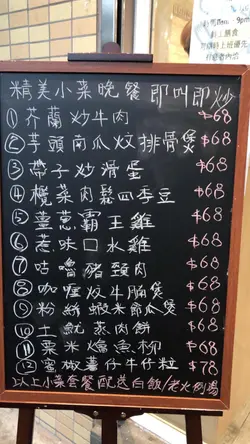 精美小菜晚餐 即叫即炒
① 芥蘭炒牛肉 $68
② 芋頭南瓜炆排骨煲 $68
③ 帶子炒滑蛋 $68
④ 欖菜肉鬆四季豆 $68
⑤ 薑蔥霸王雞 $68
⑥ 惹味口水雞 $68
⑦ 咕嚕豬頸肉 $68
⑧ 咖喱炆牛腩煲 $68
⑨ 粉絲蝦米節瓜煲 $68
⑩ 土魷蒸肉餅 $68
⑪ 粟米燴魚柳 $68
⑫ 蜜椒薯仔牛仔粒 $78
以上小菜套餐配送白飯/老火例湯